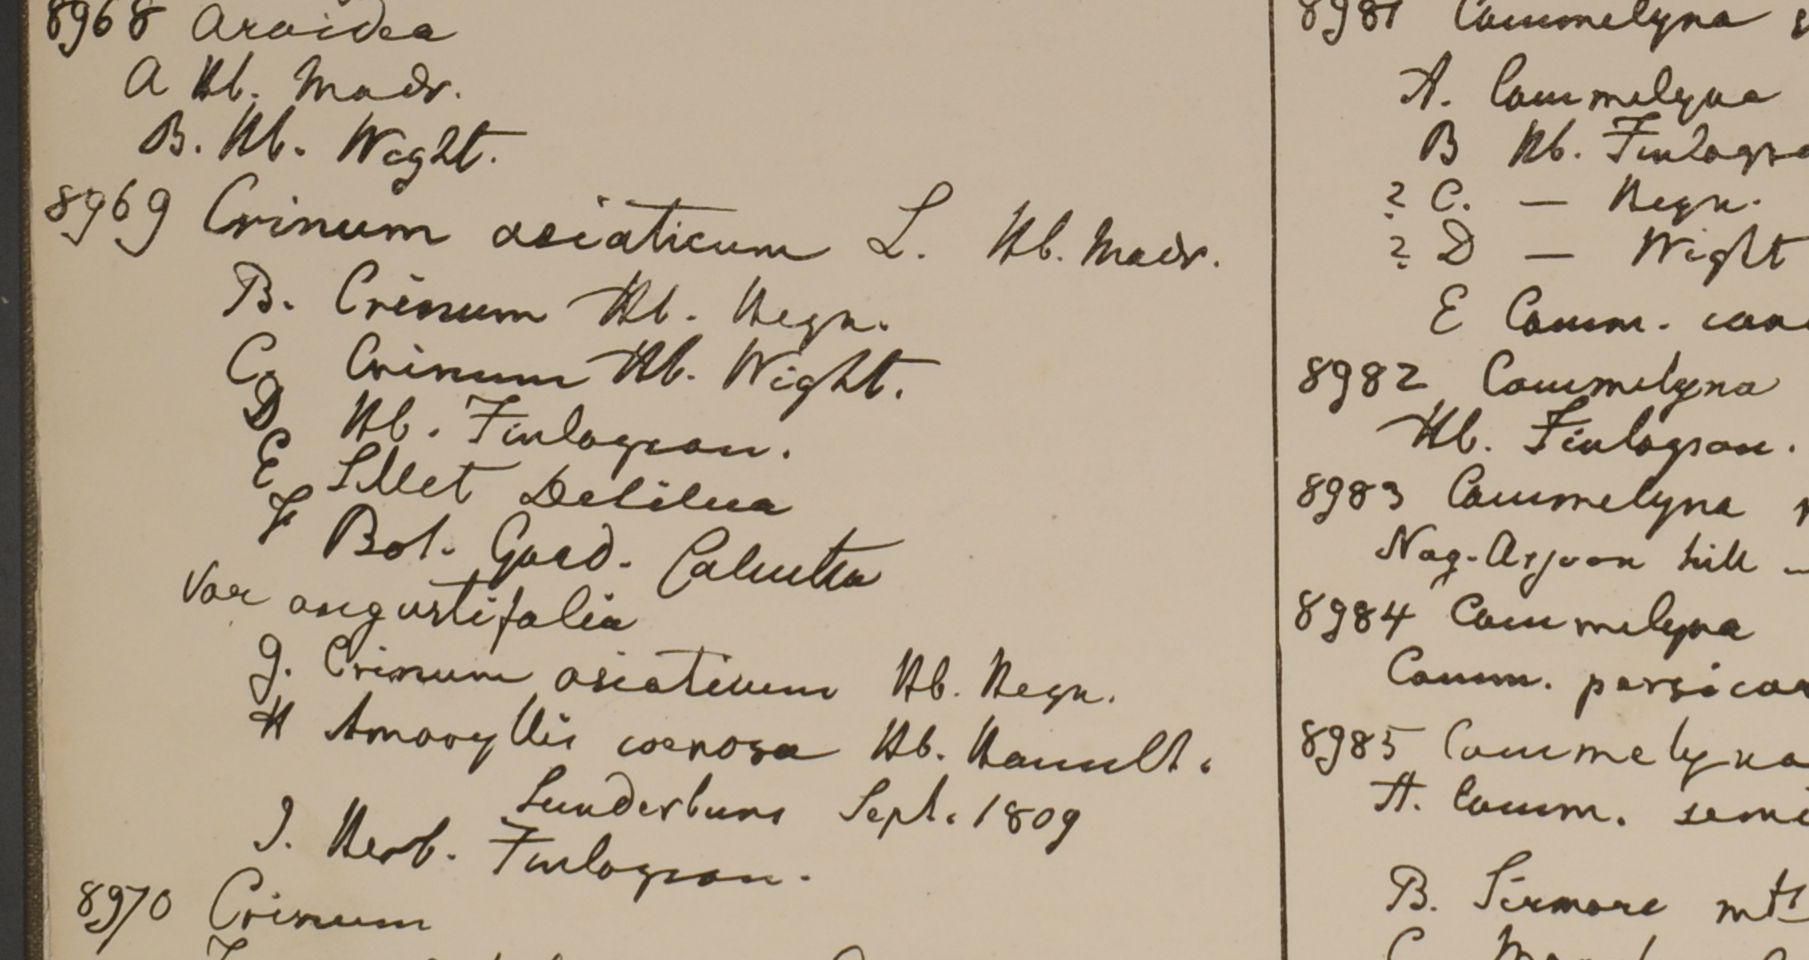 8968 Aroidea
A Hb. Madr.
B. Hb. Wight.
8969 Crinum asiaticum L. Hb. Madr.
B. Crinum Hb. Heyn.
C. Crinum Hb. Wight.
D Hb. Finlayson.
E Sillet
F Bot. Gard. Calcutta
Var angustifolia
G. Crinum asiaticum Hb. Heyn.
H Amaryllis Hb. Hamilt.
Sunderbuns Sept. 1809
I. Herb. Finlayson.
8970 Crinum
8981 Commelyna
A. Commelyna
B Hb. Finlayso
? C. — Heyn.
? D — Wight
E Comm.
8982 Commelyna
Hb. Finlayson.
8983 Commelyna
Nag-Arjoon hill —
8984 Commelyna
Comm. persicar
8985 Commelyna
A. Comm. semi
B. Sirmore mts
C.